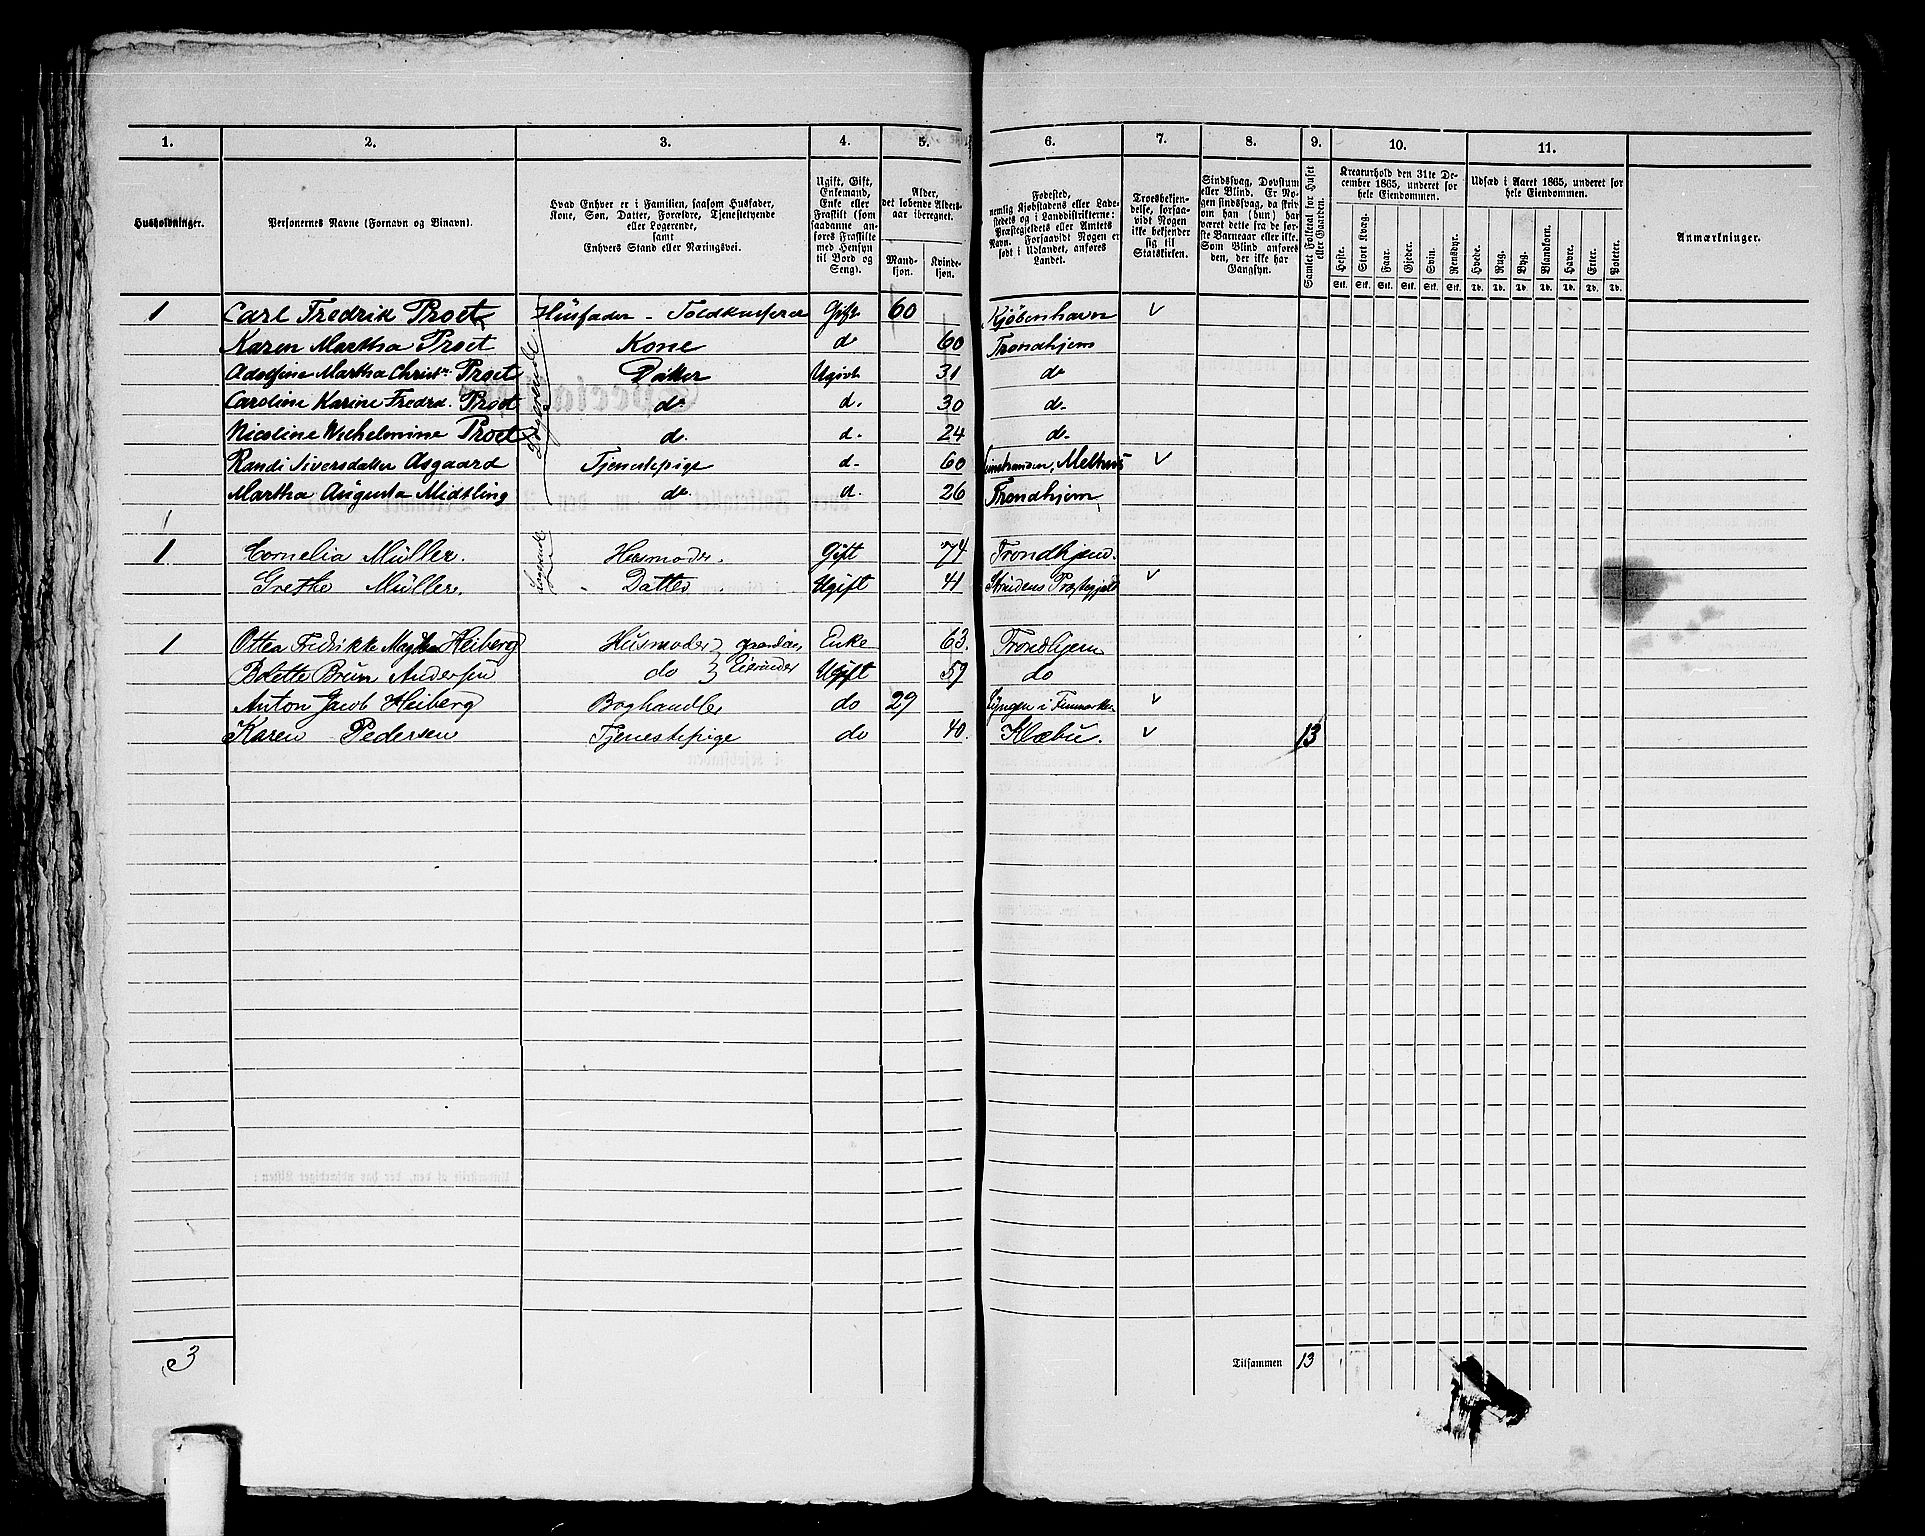 1. 2. 3. 4. 5. 6. 7. 8. 9. 10. 11.
Husholdninger.
Personernes Navne (Fornavn og Binavn).
Hvad Enhver er i Familien, saasom Husfader,
Kone, Søn, Datter, Forældre, Tjenestetyende
eller Logerende,
samt
Enhvers Stand eller Næringsvei.
Ugift, Gift,
Enkemand,
Enke eller
Fraskilt (som
saadanne an-
føres Fraskilte
med Hensyn
til Bord og
Seng).
Alder,
det løbende Alders-
aar iberegnet.
Mand-
kjøn.
Kvinde-
kjøn.
Fødested,
nemlig Kjøbstadens eller Lade-
stedets og i Landdistrikterne:
Præstegjeldets eller Amtets
Navn. Forsaavidt Nogen er
født i Udlandet, anføres
Landet.
Troesbekjen-
delse, forsaa-
vidt Nogen
ikke bekjender
sig til
Statskirken.
Sindssvag, Døvstum
eller Blind. Er No-
gen sindssvag, da skriv
om han (hun) har
været dette fra de før-
ste Barneaar eller ikke.
Som Blind anføres
den, der ikke har
Gangsyn.
Samlet Folketal for Huset
eller Gaarden.
Kreaturhold den 31te De-
cember 1865, underet for
hele Eiendommen.
Heste. Stort Kvæg. Faar. Gjeder. Svin. Rensdyr.
Stk. Stk. Stk. Stk. Stk. Stk.
Udsæd i Aaret 1865, underet for
hele Eiendommen.
Hvede. Rug. Byg. Blandkorn. Havre. Erter. Poteter.
Td. Td. Td. Td. Td. Td. Td.
Anmærkninger.
1 Carl Fredrik Proet Husfader - Gift 60 Kjøbenhavn
Karen Martha Proet Kone do 60 Trondhjem
Adolfine Martha Christn. Proet Datter Ugivt 31 do
Caroline Karine Fredrd. Proet do d. 30 d-
Nicoline Wilhelmine Proet d. d- 24 d-
Randi Siversdatter Aasgaard Tjenestepige d- 60 Melhuus
Martha Augusta Midtling do d. 26 Trondhjem
Logerende
1 Cornelia Müller. Husmoder. Gift 74 Trondhjem.
Grethe Müller. - Datter. Ugift 41 Strindens Præstegjeld
Logerende
1 Ottea Fredrikke Heiberg Husmoder Enke 63. Trondhjem
Bolette Brun Andersen do Ugift 57 do
Anton Jacob Heiberg Boghandler do 29 Lyngen i Finmarken
Karen Pedersen Tjenestepige do 40. Klæbu. 13
3 Tilsammen 13